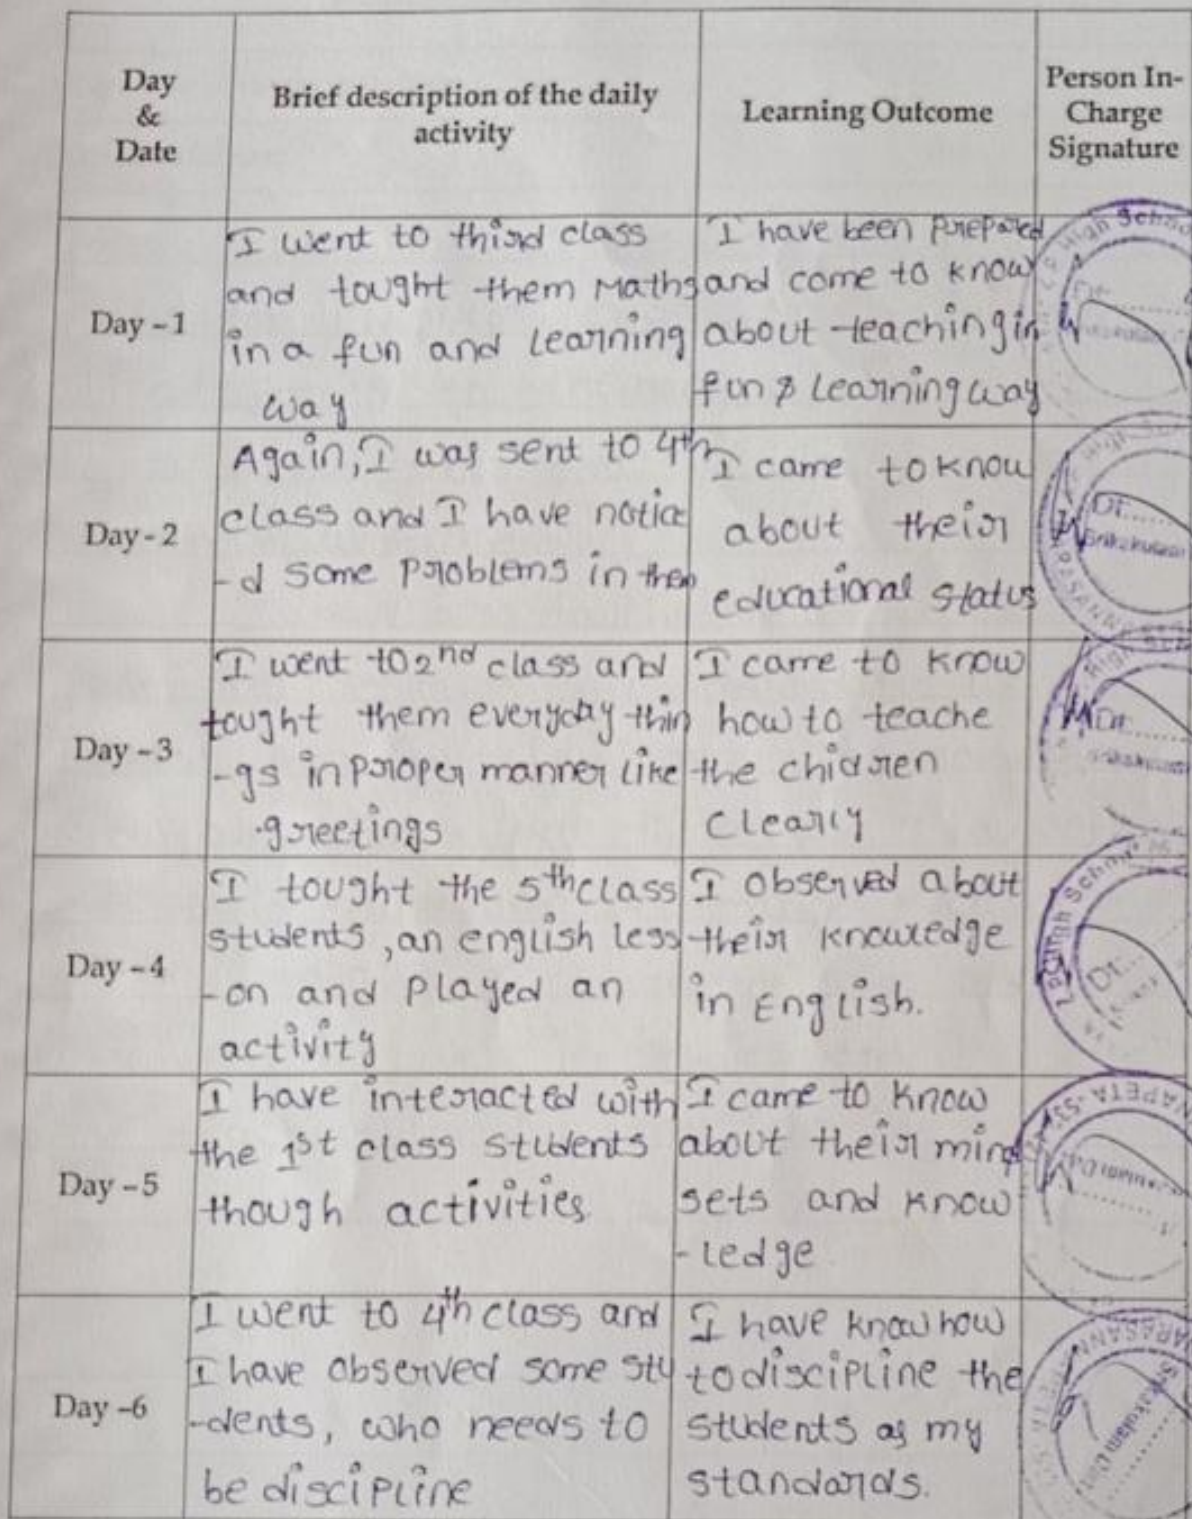 Day
&
Date
Brief description of the daily
activity
Learning Outcome
Person In-
Charge
Signature
Day - 1
I went to third class
and tought them Maths
in a fun and learning
way
I have been prepared
and come to know
about teaching in
fun & learning way
High School
Day - 2
Again, I was sent to 4th
class and I have notice
-d some problems in them
I came to know
about their
educational status
Dt......
Srikakulam
Day - 3
I went to 2nd class and
tought them everyday thin
-gs in proper manner like
greetings
I came to know
how to teache
the chidren
clearly
Day - 4
I tought the 5th class
students, an english less
-on and played an
activity
I observed about
their knowledge
in English.
Z.P. High School
Dt...
Day - 5
I have interacted with
the 1st class students
though activities
I came to know
about their mind
sets and know
-ledge
Day -6
I went to 4th class and
I have observed some stu
-dents, who needs to
be discipline
I have know how
to discipline the
students as my
standards.
Srikakulam Dist